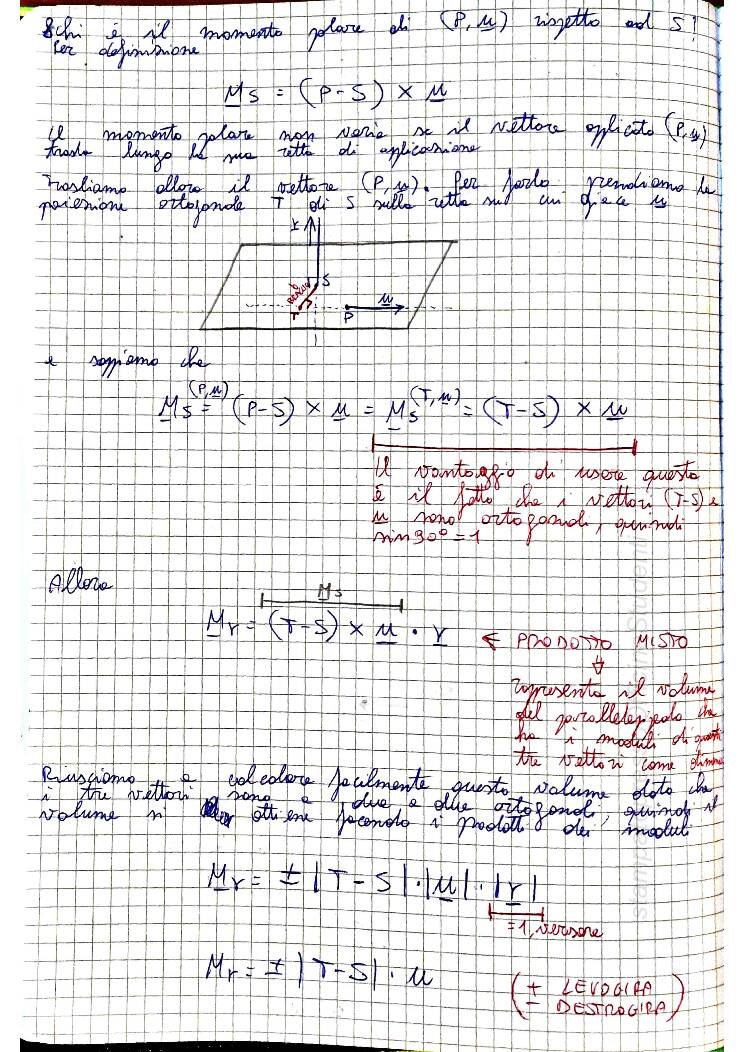 chi è il momento polare di (P, u) rispetto ad S?
Per definizione
Ms = (P-S) × u
Il momento polare non varia se il vettore applicato (P, u)
trasla lungo la sua retta di applicazione
Trasliamo allora il vettore (P, u). Per farlo prendiamo la
poiezione ortogonale T di S sulla retta su cui giace u
r
S
T
P
u
e sappiamo che
Ms(P,u) = (P-S) × u = Ms(T,u) = (T-S) × u
Il vantaggio di usare questa
è il fatto che i vettori (T-S) e
u sono ortogonali, quindi
sin90° = 1
Allora
Ms
Mr = (T-S) × u · r
← PRODOTTO MISTO
⇓
rappresenta il volume
del parallelepipedo che
ha i moduli di questi
tre vettori come
Riusciamo a calcolare facilmente questo volume dato che
i tre vettori sono a due a due ortogonali, quindi il
volume si ottiene facendo i prodotti dei moduli
Mr = ± |T-S| · |u| · |r|
=1, versore
Mr = ± |T-S| · u
(+ LEVOGIRA
- DESTROGIRA)